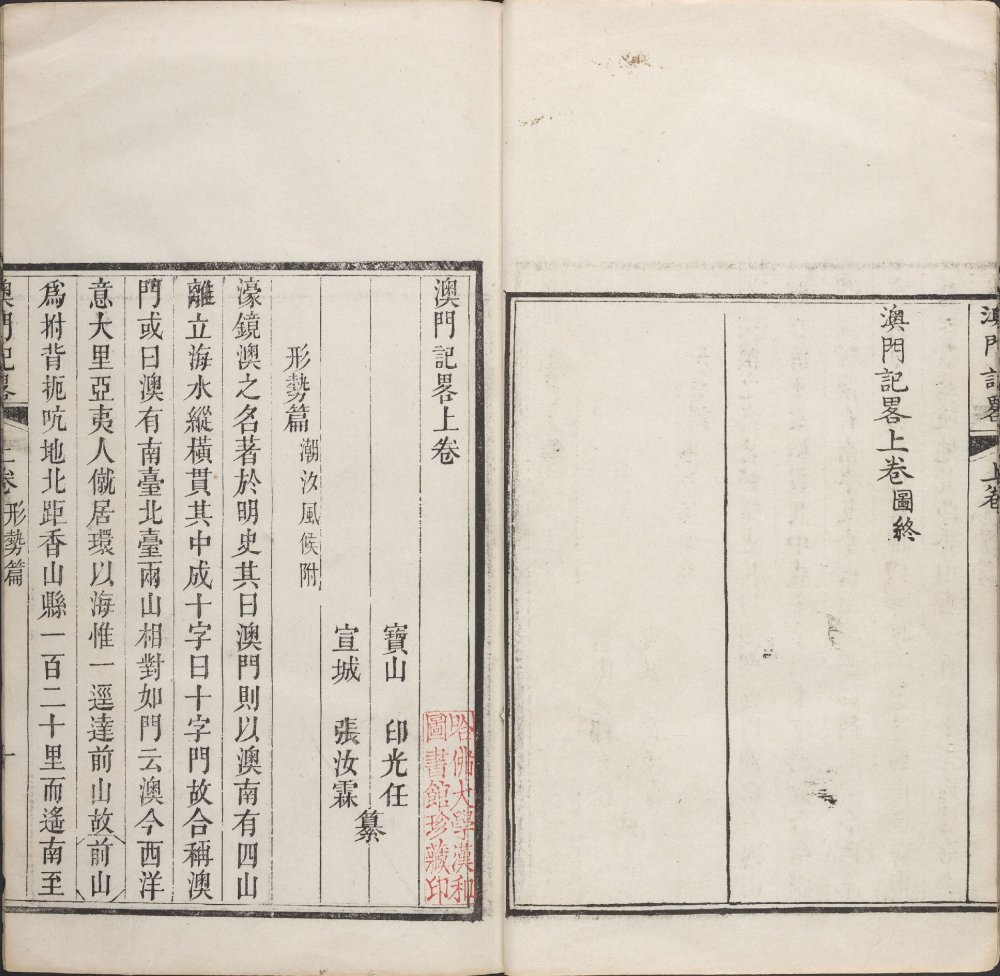 澳門記畧
上卷
澳門記畧上卷圖終
澳門記畧上卷
寶山　印光任
宣城　張汝霖
纂
形勢篇 潮汐風候附
濠鏡澳之名著於明史其曰澳門則以澳南有四山
離立海水縱橫貫其中成十字曰十字門故合稱澳
門或曰澳有南臺北臺兩山相對如門云澳今西洋
意大里亞夷人僦居環以海惟一逕達前山故前山
爲拊背扼吭地北距香山縣一百二十里而遙南至
澳門記畧
上卷
形勢篇
一
哈佛大學漢和
圖書館珍藏印